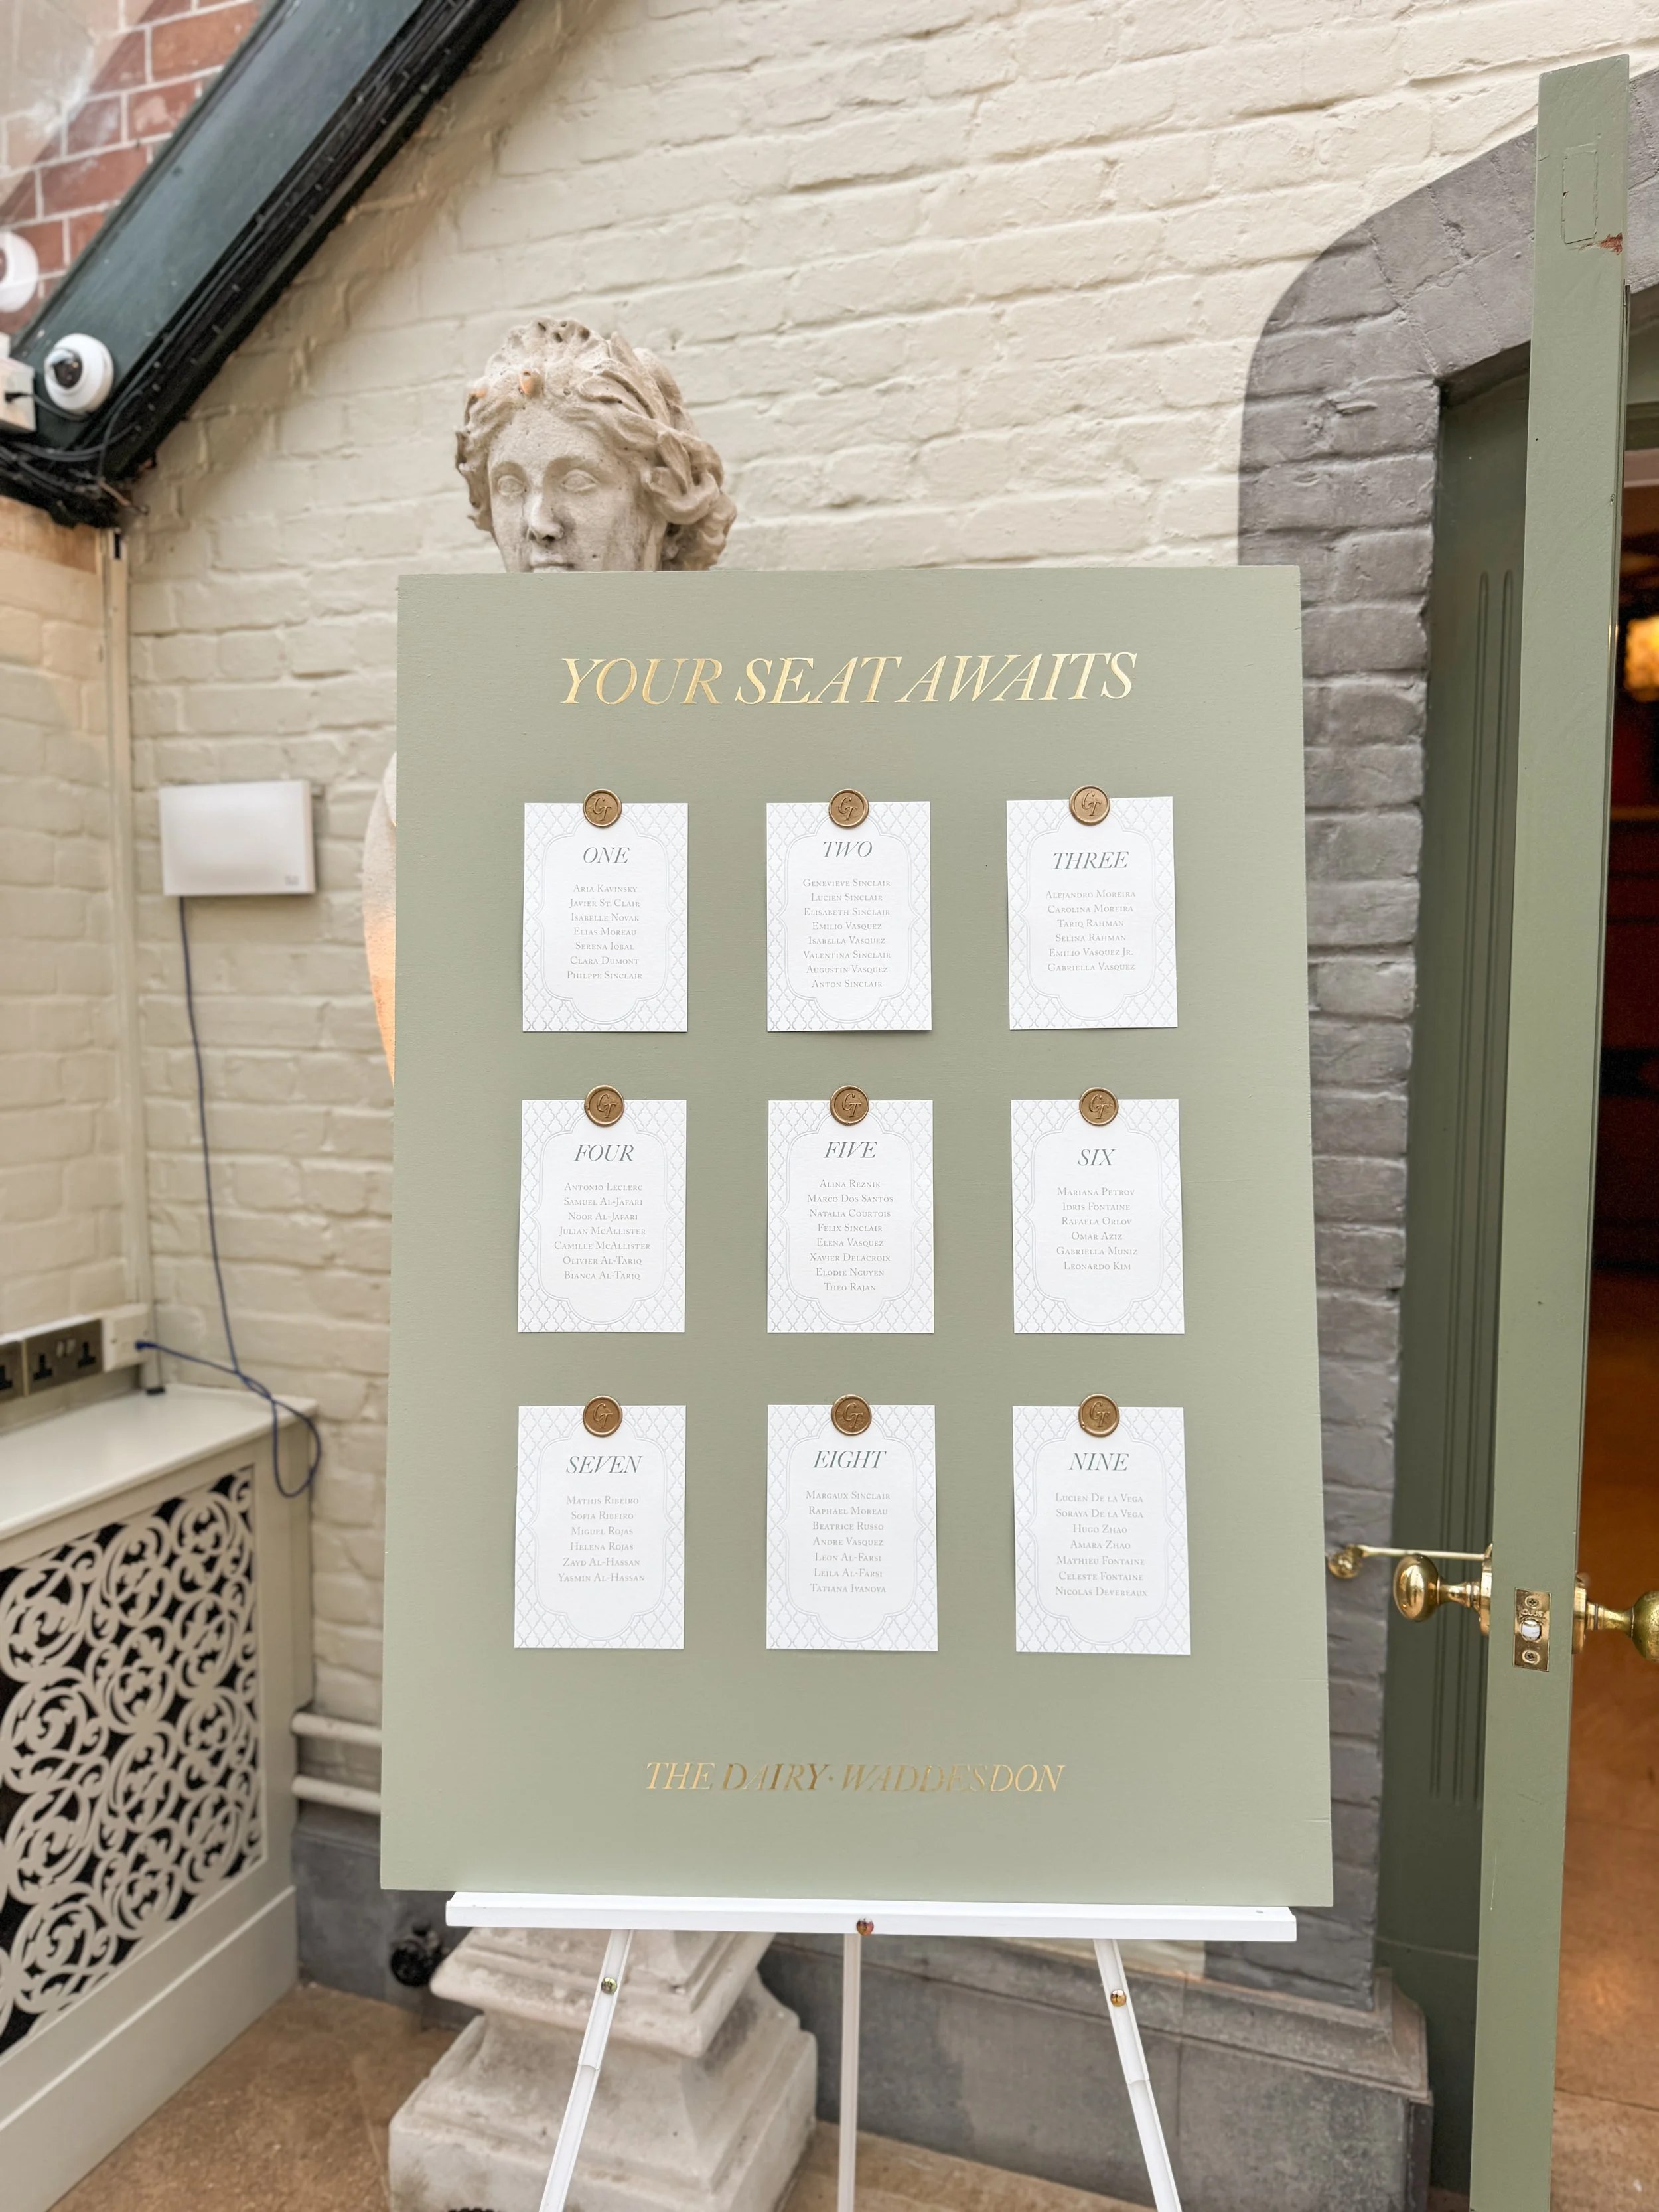 YOUR SEAT AWAITS
GT
ONE
ARIA KAVINSKY
JAVIER ST. CLAIR
ISABELLE NOVAK
ELIAS MOREAU
SERENA IQBAL
CLARA DUMONT
PHILPPE SINCLAIR
GT
TWO
GENEVIEVE SINCLAIR
LUCIEN SINCLAIR
ELISABETH SINCLAIR
EMILIO VASQUEZ
ISABELLA VASQUEZ
VALENTINA SINCLAIR
AUGUSTIN VASQUEZ
ANTON SINCLAIR
GT
THREE
ALEJANDRO MOREIRA
CAROLINA MOREIRA
TARIQ RAHMAN
SELINA RAHMAN
EMILIO VASQUEZ JR.
GABRIELLA VASQUEZ
GT
FOUR
ANTONIO LECLERC
SAMUEL AL-JAFARI
NOOR AL-JAFARI
JULIAN MCALLISTER
CAMILLE MCALLISTER
OLIVIER AL-TARIQ
BIANCA AL-TARIQ
GT
FIVE
ALINA REZNIK
MARCO DOS SANTOS
NATALIA COURTOIS
FELIX SINCLAIR
ELENA VASQUEZ
XAVIER DELACROIX
ELODIE NGUYEN
THEO RAJAN
GT
SIX
MARIANA PETROV
IDRIS FONTAINE
RAFAELA ORLOV
OMAR AZIZ
GABRIELLA MUNIZ
LEONARDO KIM
GT
SEVEN
MATHIS RIBEIRO
SOFIA RIBEIRO
MIGUEL ROJAS
HELENA ROJAS
ZAYD AL-HASSAN
YASMIN AL-HASSAN
GT
EIGHT
MARGAUX SINCLAIR
RAPHAEL MOREAU
BEATRICE RUSSO
ANDRE VASQUEZ
LEON AL-FARSI
LEILA AL-FARSI
TATIANA IVANOVA
GT
NINE
LUCIEN DE LA VEGA
SORAYA DE LA VEGA
HUGO ZHAO
AMARA ZHAO
MATHIEU FONTAINE
CELESTE FONTAINE
NICOLAS DEVEREAUX
THE DAIRY · WADDESDON